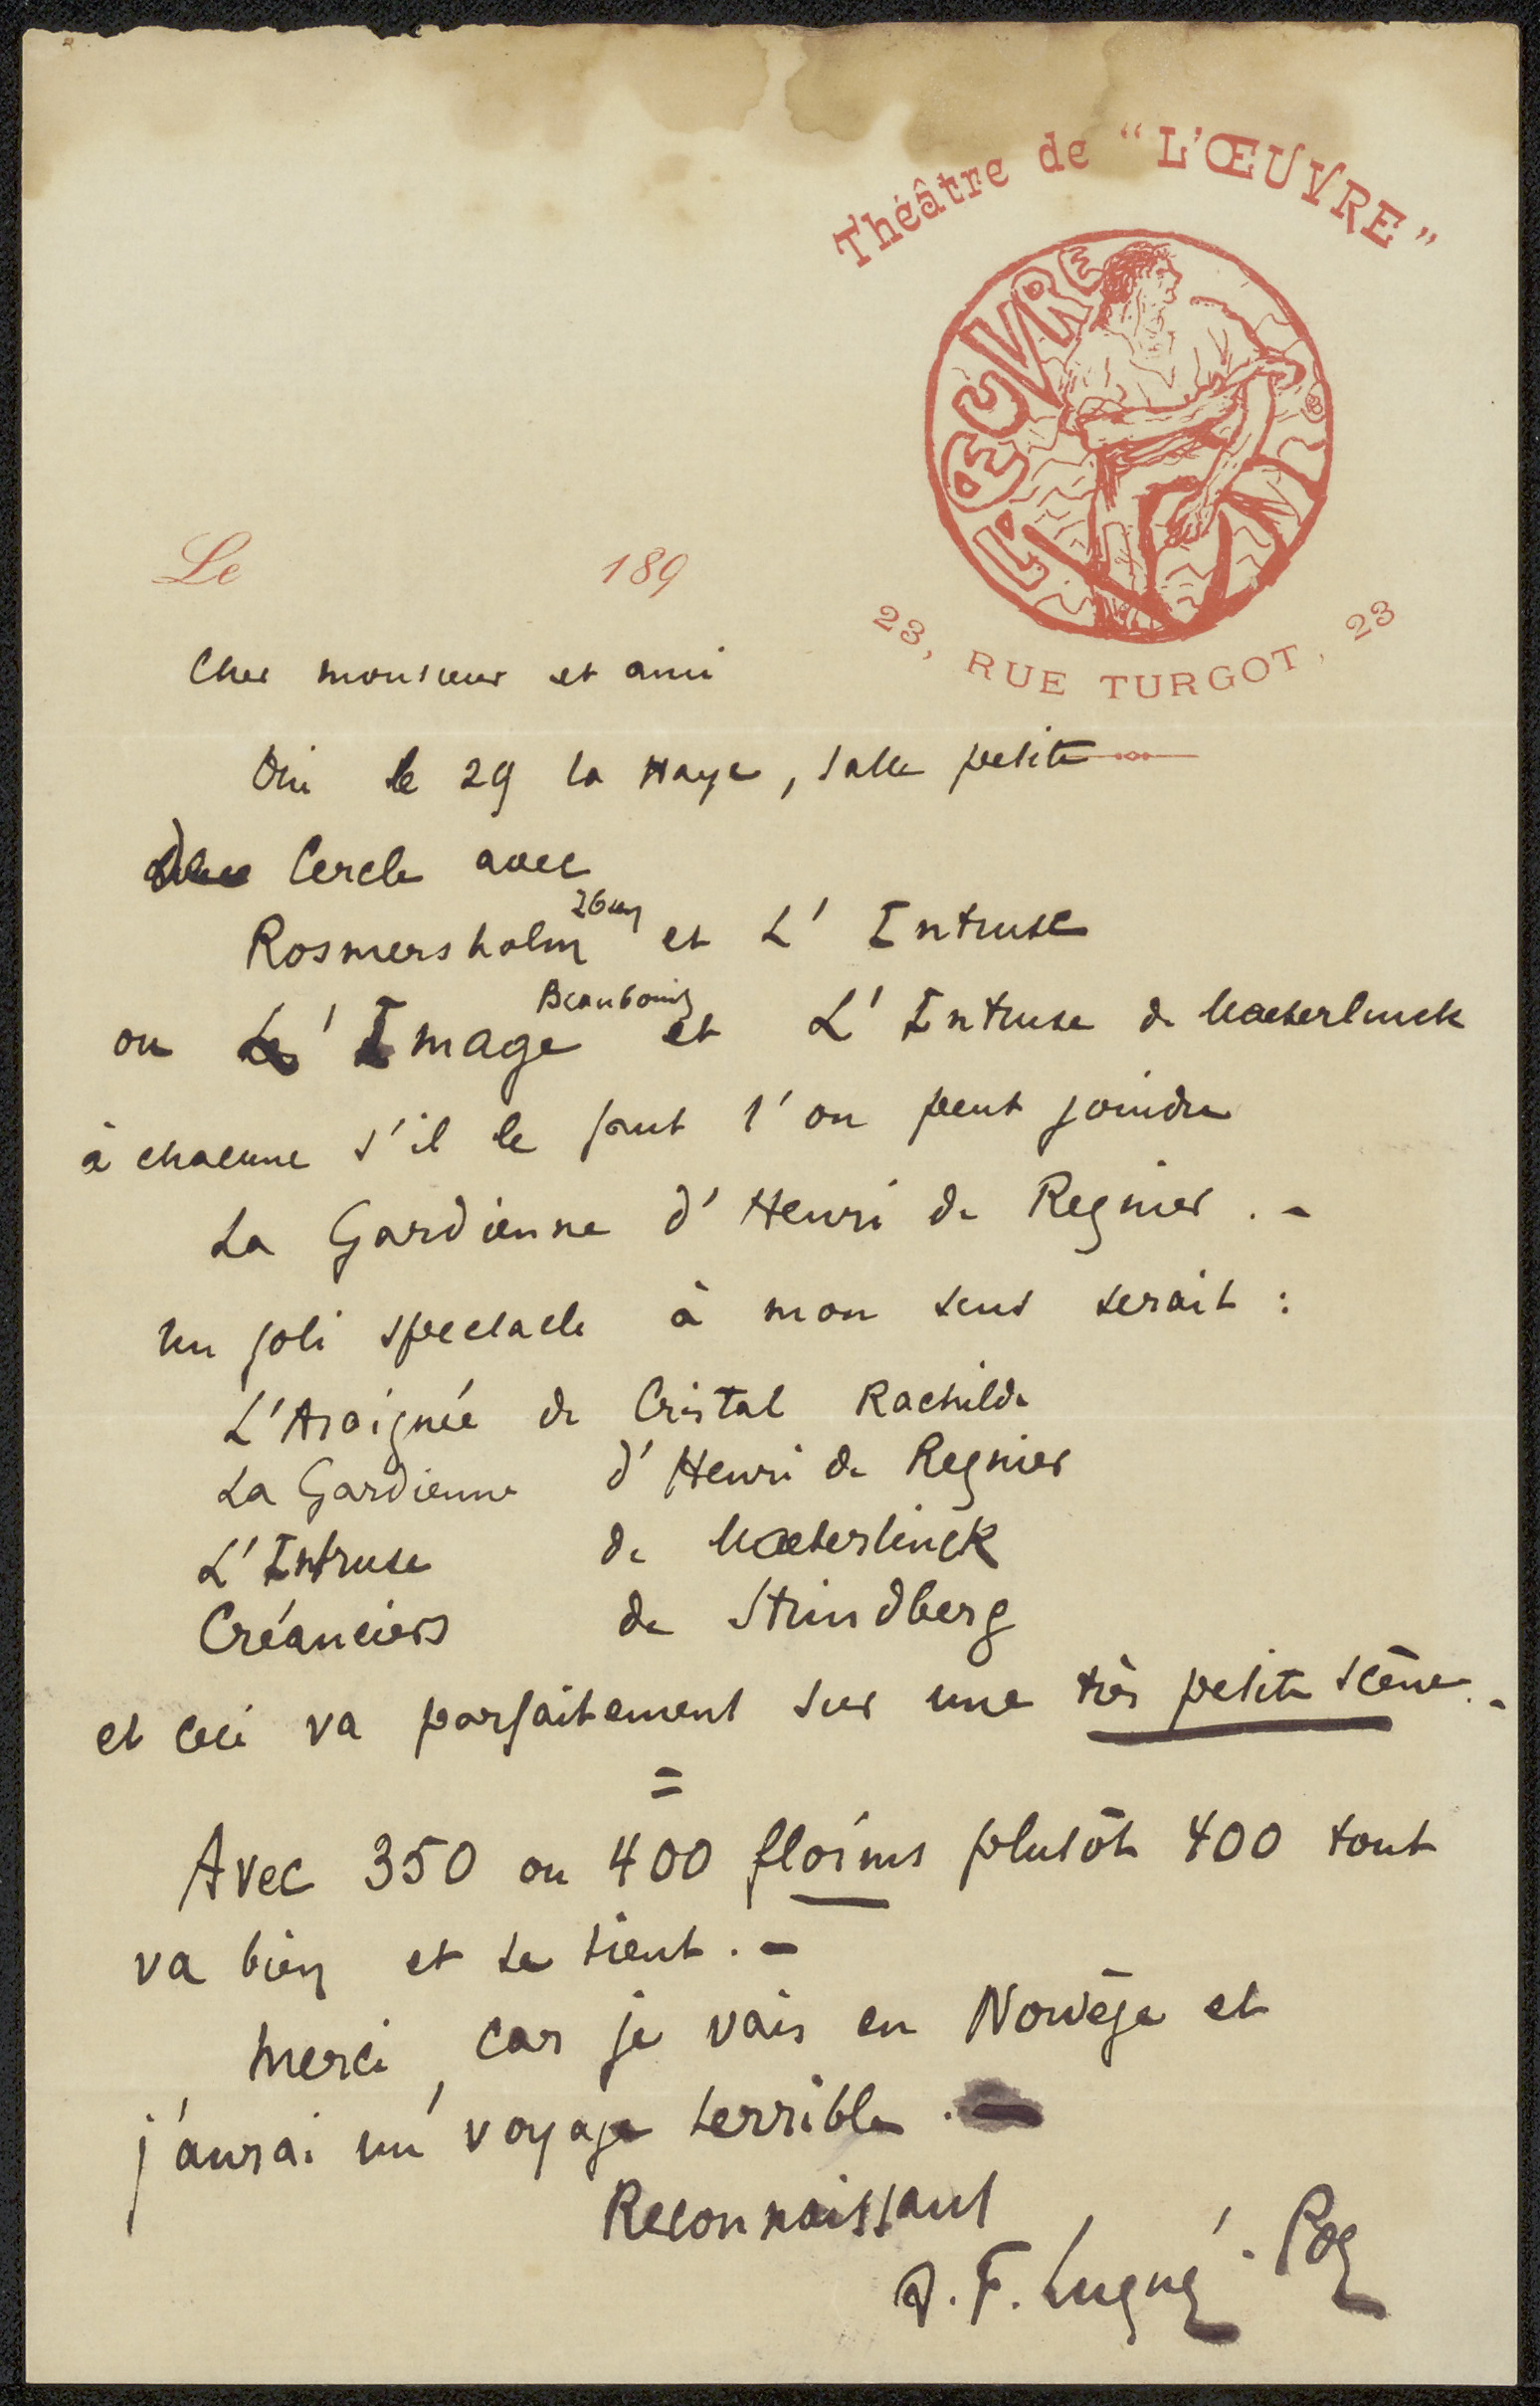 Théâtre de "L'ŒUVRE"
L'ŒUVRE
23, RUE TURGOT, 23
Le 189
Cher monsieur et ami
Oui le 29 la Haye, salle petite
Cercle avec
Ibsen
Rosmersholm et L'Intruse
Beaubourg
ou L'Image et L'Intruse de Maeterlinck
à chacune s'il le faut l'on peut joindre
La Gardienne d'Henri de Regnier. -
Un joli spectacle à mon sens serait :
L'Araignée de Cristal Rachilde
La Gardienne d'Henri de Regnier
L'Intruse de Maeterlinck
Créanciers de Strindberg
et ceci va parfaitement sur une très petite scène. -
=
Avec 350 ou 400 florins plutôt 400 tout
va bien et se tient. -
Merci, car je vais en Norvège et
j'aurai un voyage terrible. -
Reconnaissant
A. F. Lugné-Poe